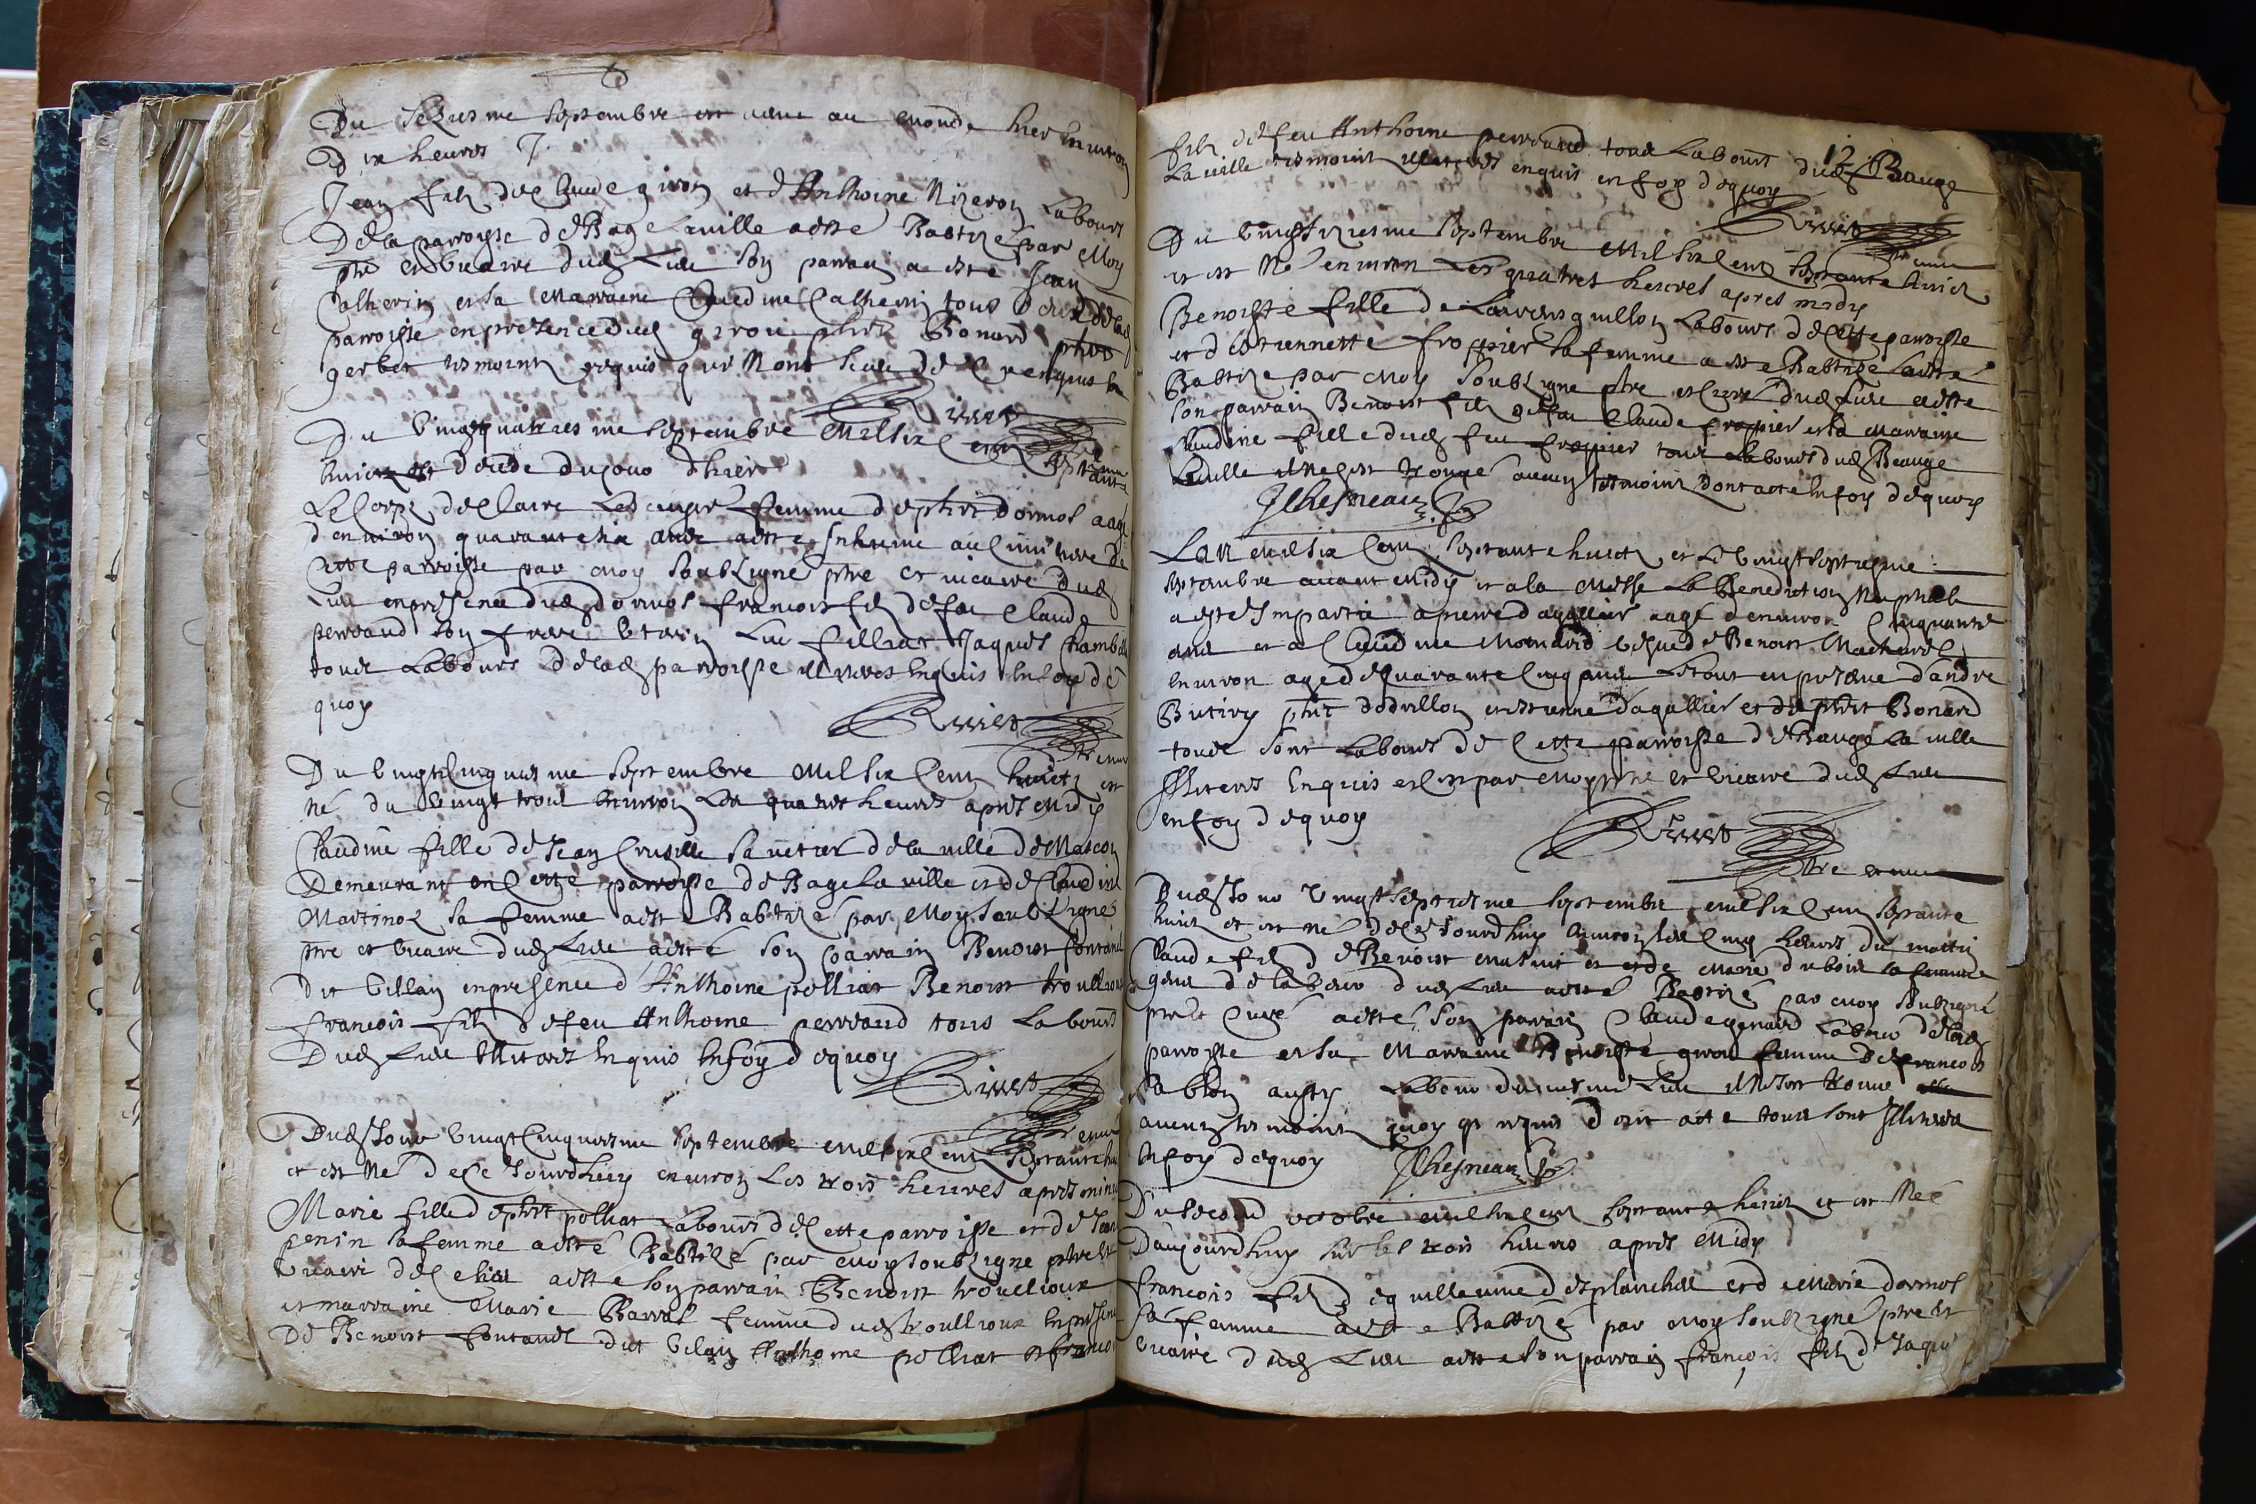 Du sezuesme septembre est venu au monde hier environ
dix heures
Jean filz de Claude giroy et d'Anthoine Nizeroy Labours
De la parroisse de Bage Laville a esté Baptizé par Moy
ptre et vicaire dud Lieu son parrain a esté Jean
Catherin et sa Marraine Claudine Catherin tous deux de lad
parroisse en presence dud girou phlt Bonard phlt
gerbet tesmoins requis qui n'ont sceu de ce enquis
Rivet
Du vingtquatriesme septembre Mil six cent septante
huict est decede du jour d'hier
Le Corps de Claire femme de phlt Dormol aagé
d'environ quarante six ans a esté inhumé au cimitiere de
Cette parroisse par moy soubzigné ptre et vicaire dud
Lieu en presence dud Dormol francois filz de feu Claude
perroud son frere Luc pilliat Jaques Chambel
tous Labours de lad parroisse illiteres Enquis En foy de
quoy
Rivet
Ptre et vic
Du vingtcinquiesme septembre Mil six cent huict est
né du vingt trois environ Les quatre heures apres Midy
Claudine fille de Jean savetier de la ville de Mascon
Demeurant en Cette parroisse de Bage la ville et de Claudine
Martinot sa femme a esté Babtizé par Moy soubzigné
ptre et vicaire dud Lieu a esté son parrain Benoist fontanel
Dit villain en presence d'Anthoine polliat Benoist troullioux
francois filz de feu Anthoine perroud tous Labours
Dud Lieu illiteres Enquis En foy de quoy
Rivet
Dud Jour vingtcinquiesme septembre mil six cent septante
et est Né de ce Jourd'huy environ Les trois heures apres minu
Marie fille de phlt polliat Labours de Cette parroisse et de Jean
penin sa femme a esté Babtizé par moy soubzigne ptre et
vicaire de ce lieu a esté son parrain Benoist troullioux
et marraine Marie Barral femme dud troullioux En presence
De Benoist fontanel dit vilain Anthoine polliat et francois
12
filz de feu Anthoine perroud tous Labours dud Bauge
La ville tesmoins illiteres enquis en foy de quoy
Rivet
Du vingtsixiesme septembre Mil six cent septante huict
et est Né environ Les quatres heures apres midy
Benoiste fille de Laurens guillon Labours de Cette parroisse
et d'Estiennette froppier sa femme a esté Babtizé
Babtize par moy soubzigne ptre et Curé dud Lieu a esté
son parrain Benoist filz de feu Claude froppier et sa Marraine
Claudine fille dud feu froppier tous Labours dud Beauge
Laville il ne s'est trouvé aucun tesmoins dont acte En foy de quoy
JChesneau
L'an mil six cent septante huict et Le vingtseptiesme
septembre avant Midy et a la Messe La Benediction Nuptiale
a esté Impartie a pierre dagallier aagé d'environ Cinquante
ans et a Claudine Monard vesve de Benoist Machurel
environ agee de quarante Cinq ans Le tout en presence d'andre
Butiry phlt dodrillon estienne dagallier et de phlt Bonard
tous sont Labours de Cette parroisse de Baugé la ville
illiteres Enquis et par moy ptre et vicaire dud Lieu
en foy de quoy
Rivet
Ptre et vic
Dud Jour vingtseptiesme septembre mil six cent septante
huict et est né de ce Jourd'huy environ les Cinq heures du mattin
Claude filz de Benoist et de Marie dubois sa femme
gens de labeur dud Lieu a esté Baptizé par moy soubzigné
ptre et Curé a esté son parrain Claude genard Laboureur de lad
parroisse et sa Marraine Benoiste giron femme de francois
sablon aussy Labour du mesme Lieu il ne s'est trouvé
aucun tesmoins quoy que requis dont acte tous sont illiteres
En foy de quoy JChesneau
Du second octobre mil six cent septante huict et est Né
D'aujourdhuy sur les trois heures apres Midy
francois filz de guillaume desplanches et de Marie dormol
sa femme a esté Babtizé par moy soubzigné ptre et
vicaire dud Lieu a esté son parrain francois filz de Jaque